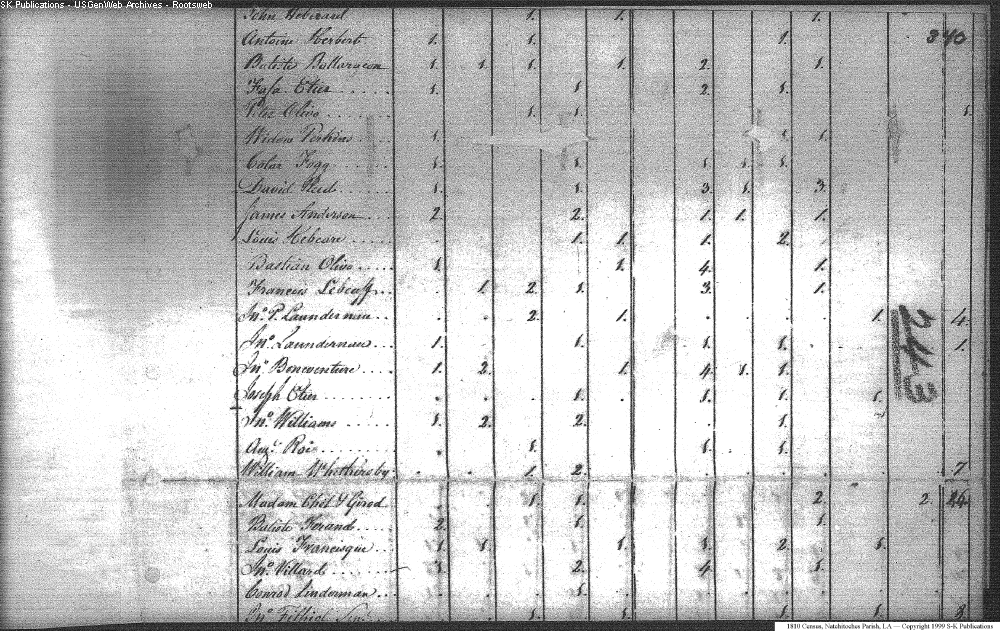 SK Publications - USGenWeb Archives - Rootsweb
John 1. 1. 1.
340
Antoine Herbert 1. 1. 1.
Batiste 1. 1. 1. 1. 2. 1.
Etier 1. 1. 2. 1.
Olivo 1. 1. 1.
Widow Perkins 1. 1. 1.
Fogg 1. 1. 1. 1. 1.
David Reed 1. 1. 3. 1. 3.
James Anderson 2. 2. 1. 1. 1.
Louis 1. 1. 1. 2.
Bastian Olivo 1. 1. 4. 1.
Francois 1. 2. 1. 3. 1.
Jno. P. Launderneau 2. 1. 1. 4.
243
Jno. Laundernau 1. 1. 1. 1. 1.
Jno. Boneventure 1. 2. 1. 4. 1. 1.
Joseph Etier 1. 1. 1. 1.
Jno. Williams 1. 2. 2. 1.
Rois 1. 1. 1.
William 1. 2. 7
Madam Girod 1. 1. 2. 2.
Batiste 2. 1. 1.
Louis Francisque 1. 1. 1. 1. 2. 1.
Jno. Villard 3. 2. 4. 1.
Conrod Linderman 1.
Jno. 1. 1. 1. 1. 1. 8.
1810 Census, Natchitoches Parish, LA — Copyright 1999 S-K Publications